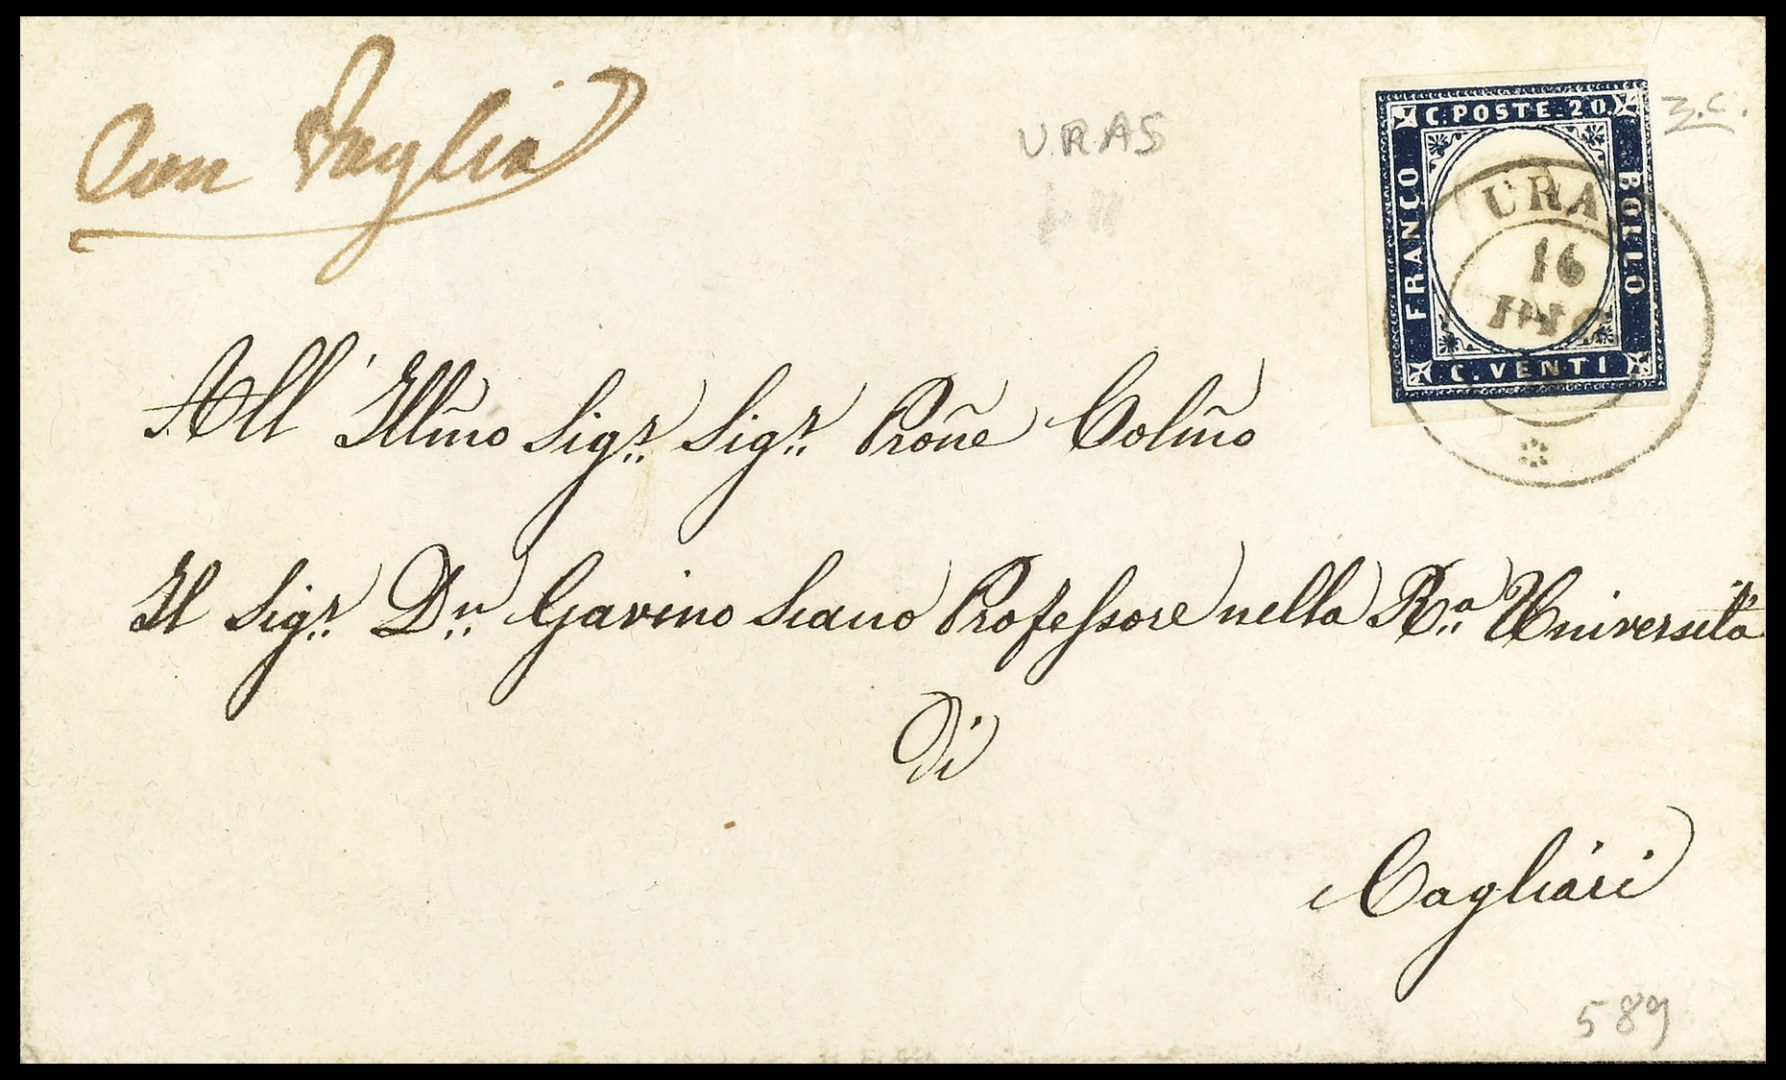 Con Vaglia
URAS
3.C.
C. POSTE. 20
FRANCO
BOLLO
C. VENTI
URA
16
DIC
All' Illm̃o Sigr. Sigr. Prõne Colm̃o
Il Sigr. Dn. Gavino Scano Professore nella Ra. Università
Di
Cagliari
589